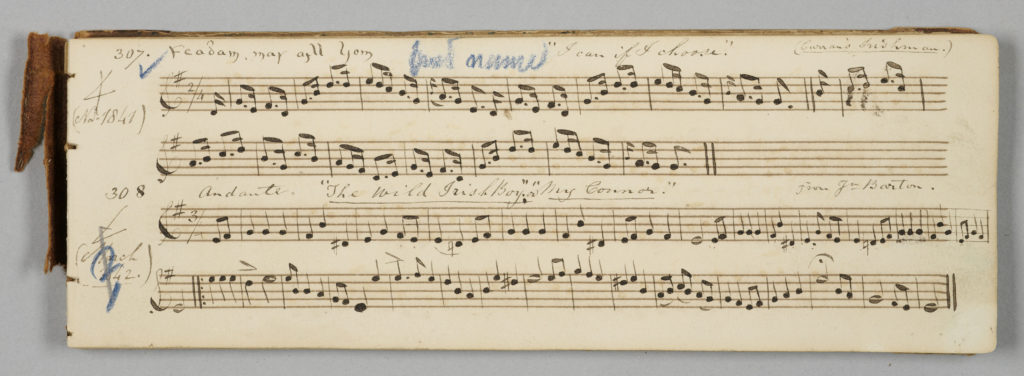 307. Feadam, mar aill liom find name "I can if I choose." (Cowan's Irishman.)
(Nov. 1841)
308 Andante. "The Wild Irish Boy," or "My Connor." from Jno Barton.
(March
42.)